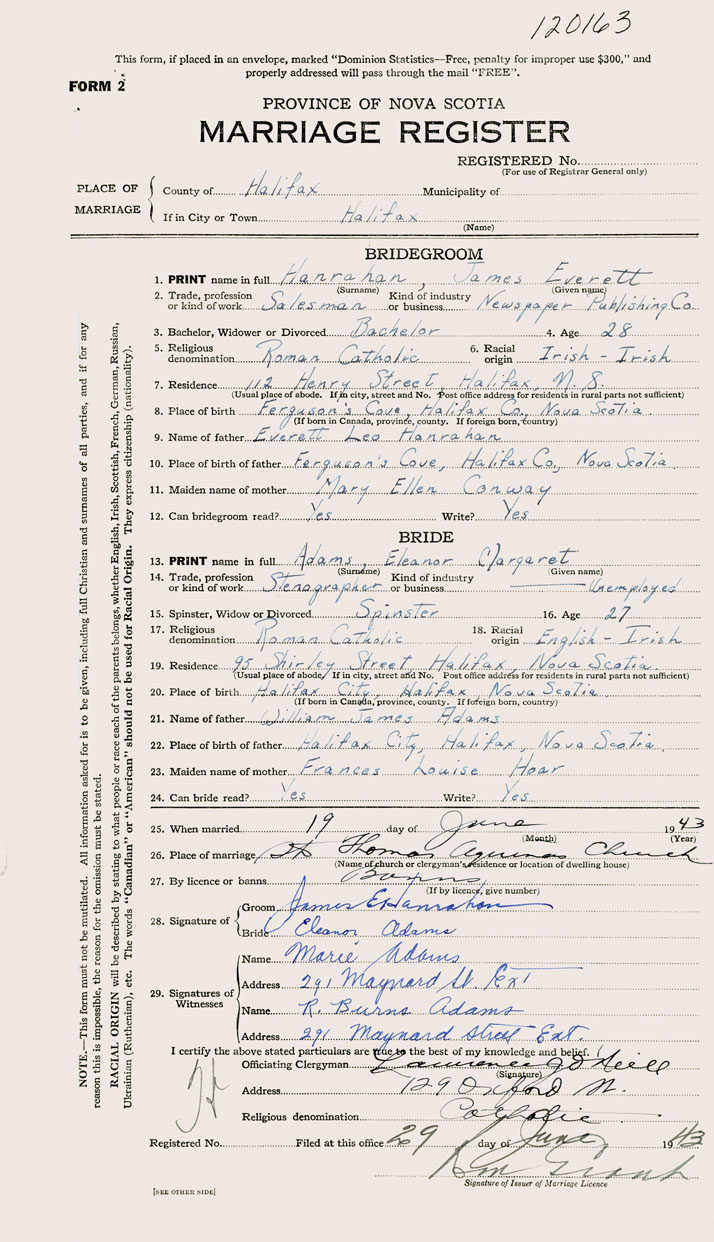 120163
This form, if placed in an envelope, marked "Dominion Statistics—Free, penalty for improper use $300," and
properly addressed will pass through the mail "FREE".
FORM 2
PROVINCE OF NOVA SCOTIA
MARRIAGE REGISTER
REGISTERED No.
(For use of Registrar General only)
PLACE OF MARRIAGE
County of Halifax Municipality of
If in City or Town Halifax
(Name)
BRIDEGROOM
1. PRINT name in full Hanrahan, James Everett
(Surname) (Given name)
2. Trade, profession or kind of work Salesman Kind of industry or business Newspaper Publishing Co.
3. Bachelor, Widower or Divorced Bachelor 4. Age 28
5. Religious denomination Roman Catholic 6. Racial origin Irish - Irish
7. Residence 112 Henry Street, Halifax, N. S.
(Usual place of abode. If in city, street and No. Post office address for residents in rural parts not sufficient)
8. Place of birth Ferguson's Cove, Halifax Co., Nova Scotia
(If born in Canada, province, county. If foreign born, country)
9. Name of father Everett Leo Hanrahan
10. Place of birth of father Ferguson's Cove, Halifax Co., Nova Scotia
11. Maiden name of mother Mary Ellen Conway
12. Can bridegroom read? Yes Write? Yes
BRIDE
13. PRINT name in full Adams, Eleanor Margaret
(Surname) (Given name)
14. Trade, profession or kind of work Stenographer Kind of industry or business Unemployed
15. Spinster, Widow or Divorced Spinster 16. Age 27
17. Religious denomination Roman Catholic 18. Racial origin English - Irish
19. Residence 95 Shirley Street, Halifax, Nova Scotia.
(Usual place of abode. If in city, street and No. Post office address for residents in rural parts not sufficient)
20. Place of birth Halifax City, Halifax, Nova Scotia.
(If born in Canada, province, county. If foreign born, country)
21. Name of father William James Adams
22. Place of birth of father Halifax City, Halifax, Nova Scotia.
23. Maiden name of mother Frances Louise Hoar
24. Can bride read? Yes Write? Yes
25. When married 19 day of June 1943
(Month) (Year)
26. Place of marriage St Thomas Aquinas Church
(Name of church or clergyman's residence or location of dwelling house)
27. By licence or banns Banns
(If by licence, give number)
28. Signature of
Groom James E Hanrahan
Bride Eleanor Adams
29. Signatures of Witnesses
Name Marie Adams
Address 291 Maynard St. Ext
Name R. Burns Adams
Address 291 Maynard Street Ext.
I certify the above stated particulars are true to the best of my knowledge and belief.
Officiating Clergyman
(Signature)
Address 129 Oxford St.
Religious denomination Catholic
Registered No. Filed at this office 29 day of June 1943
Signature of Issuer of Marriage Licence
[SEE OTHER SIDE]
NOTE.—This form must not be mutilated. All information asked for is to be given, including full Christian and surnames of all parties, and if for any
reason this is impossible, the reason for the omission must be stated.
RACIAL ORIGIN will be described by stating to what people or race each of the parents belongs, whether English, Irish, Scottish, French, German, Russian,
Ukrainian (Ruthenian), etc. The words "Canadian" or "American" should not be used for Racial Origin. They express citizenship (nationality).